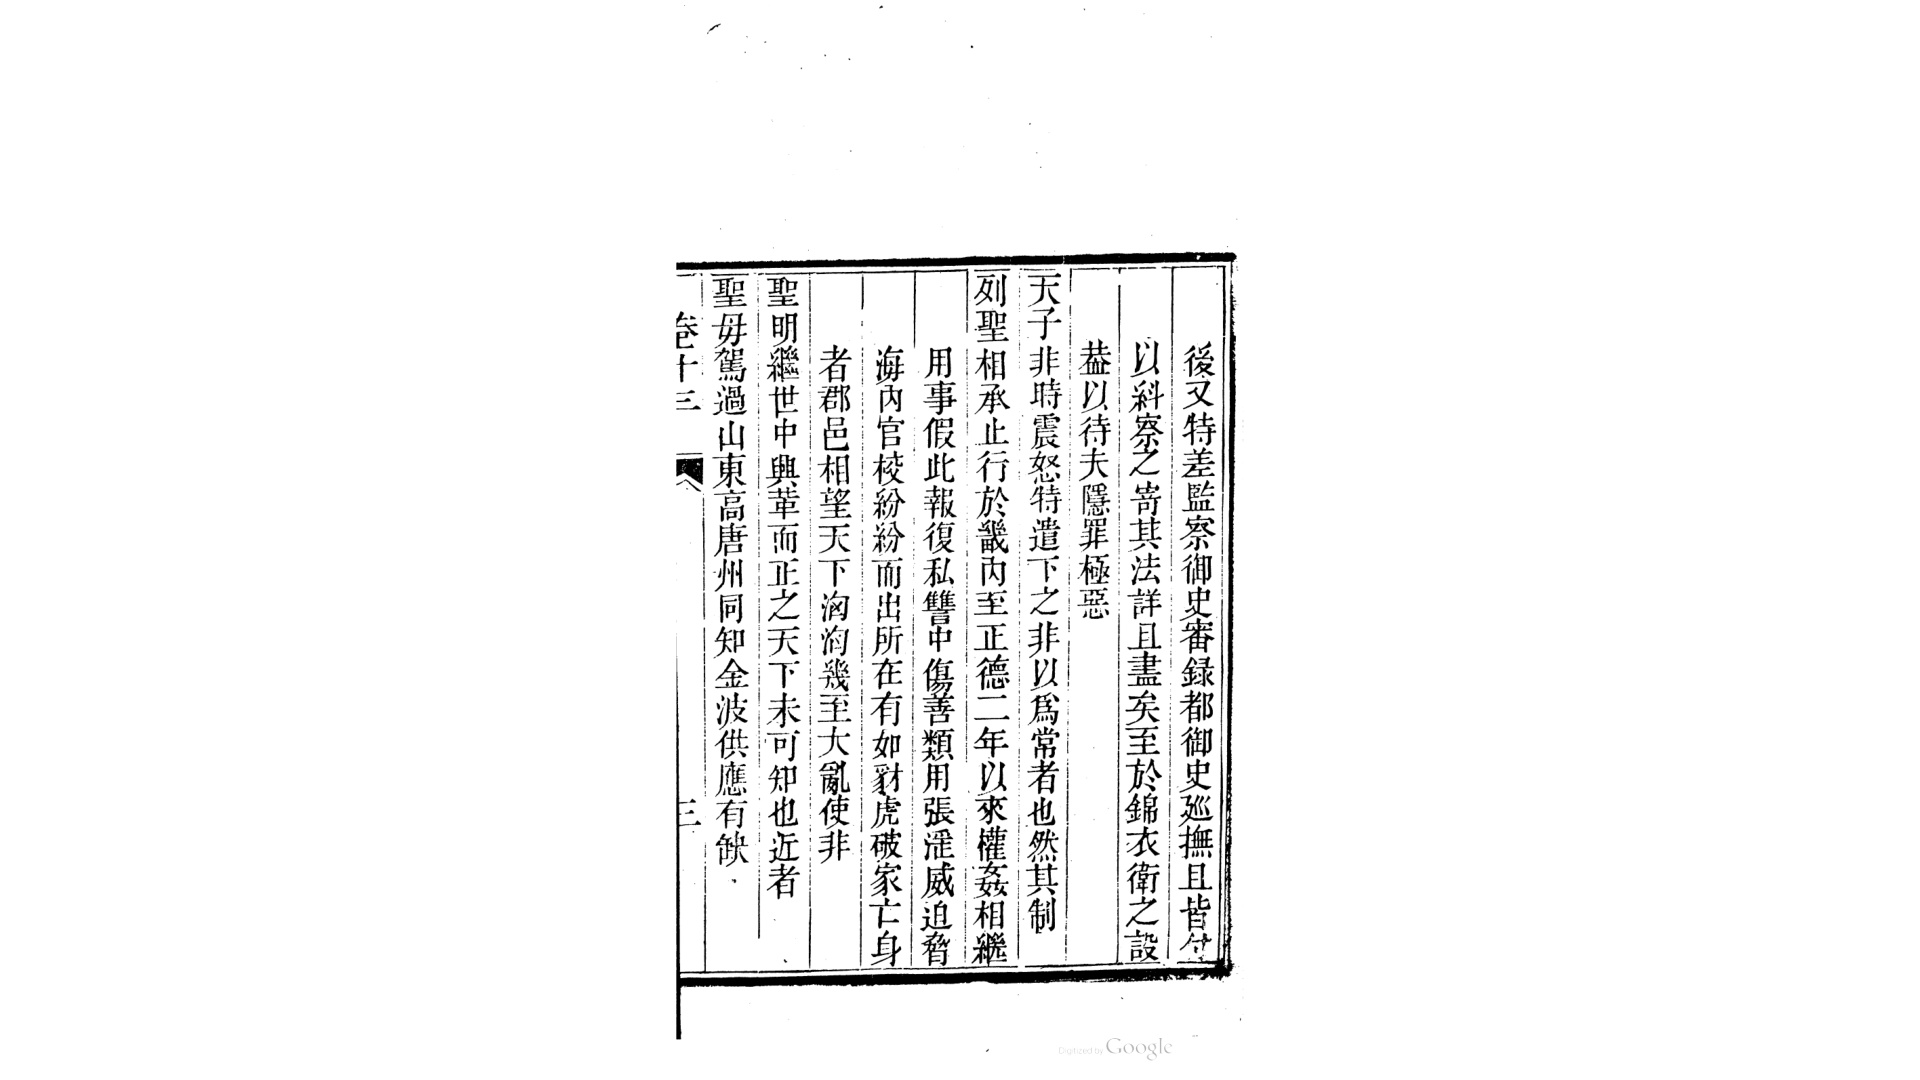 後又特差監察御史審録都御史廵撫且皆付
以糾察之寄其法詳且盡矣至於錦衣衛之設
葢以待夫隱罪極惡
天子非時震怒特遣下之非以爲常者也然其制
列聖相承止行於畿内至正德二年以來權姦相繼
用事假此報復私讐中傷善類用張滛威迫脅
海内官校紛紛而出所在有如豺虎破家亡身
者郡邑相望天下洶洶幾至大亂使非
聖明繼世中興革而正之天下未可知也近者
聖毋駕過山東高唐州同知金波供應有缺
卷十三
三
Digitized by Google